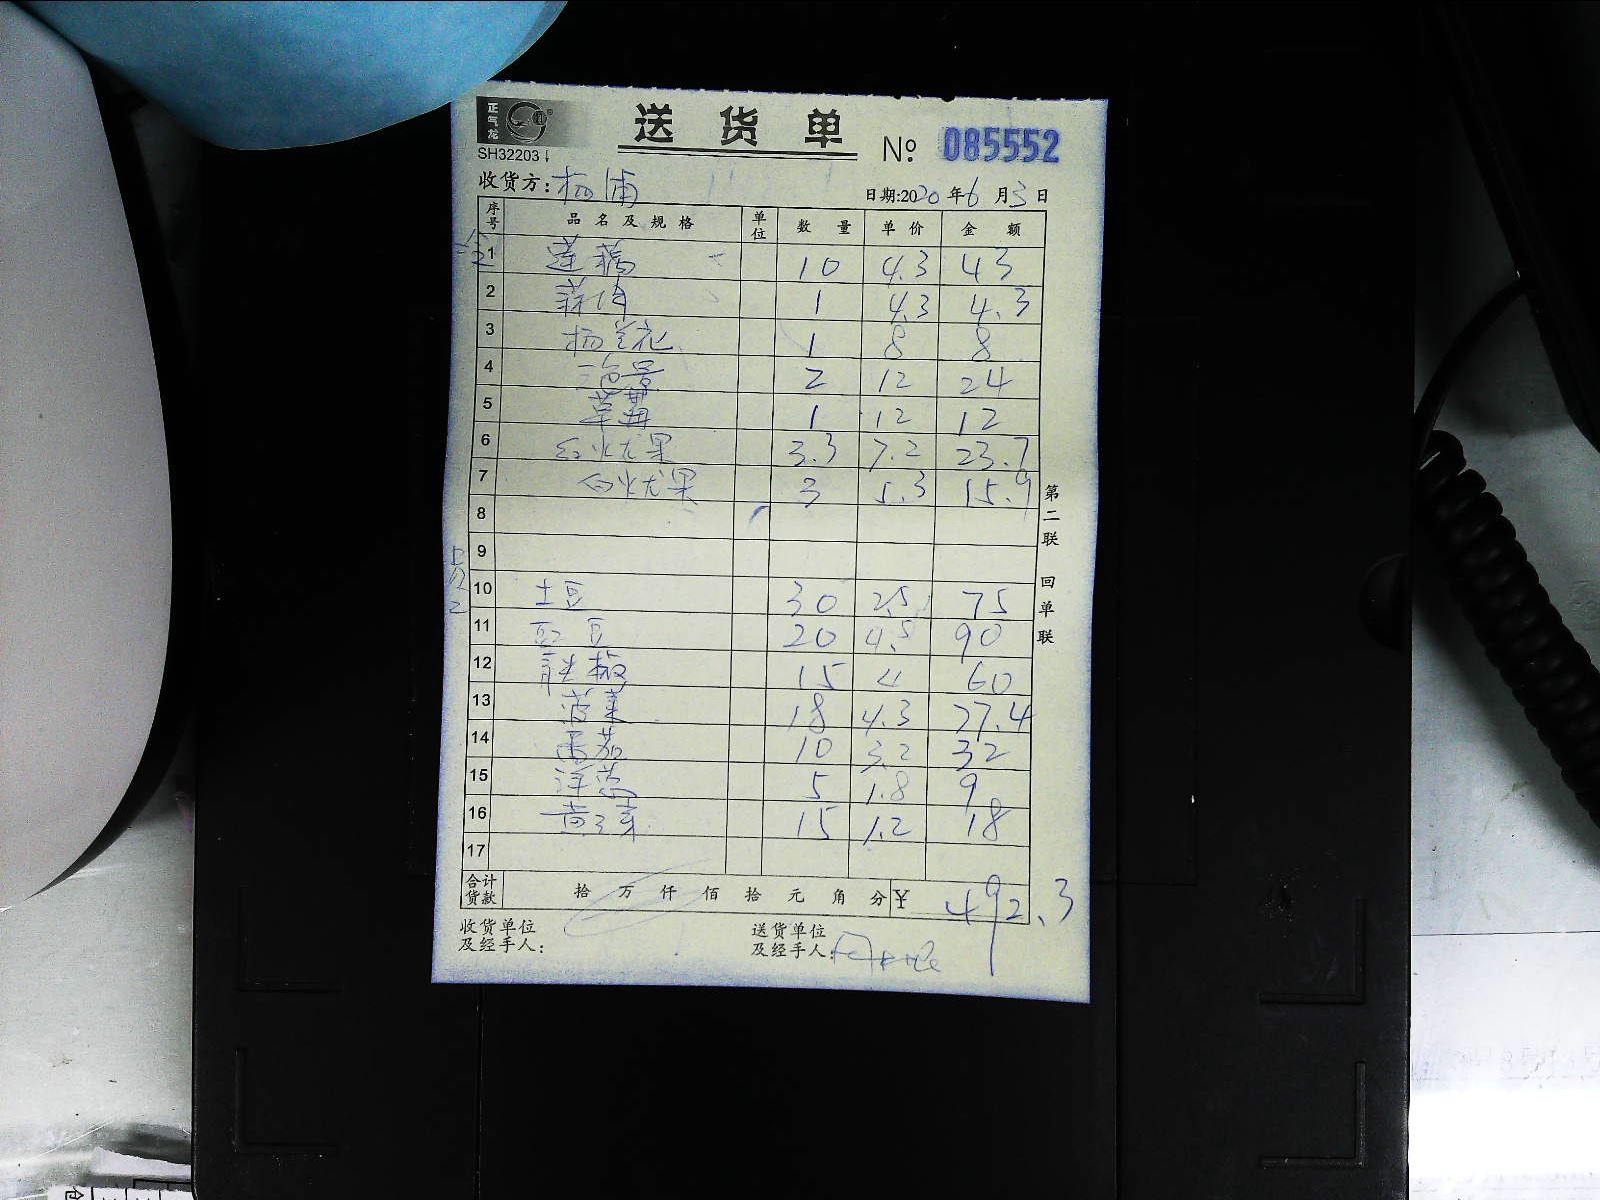 正气龙
送货单
№ 085552
SH32203
收货方:杨浦
日期:2020年6月3日
序号 品名及规格 单位 数量 单价 金额
1 10 4.3 43
2 1 4.3 4.3
3 1 8 8
4 2 12 24
5 草莓 1 12 12
6 红火龙果 3.3 7.2 23.7
7 白火龙果 3 5.3 15.9
8
9
10 土豆 30 2.5 75
11 豇豆 20 4.5 90
12 青尖椒 15 4 60
13 菠菜 18 4.3 77.4
14 番茄 10 3.2 32
15 洋葱 5 1.8 9
16 黄豆芽 15 1.2 18
17
合计货款 拾 万 仟 佰 拾 元 角 分 ¥ 492.3
收货单位及经手人:
送货单位及经手人:
第二联 回单联